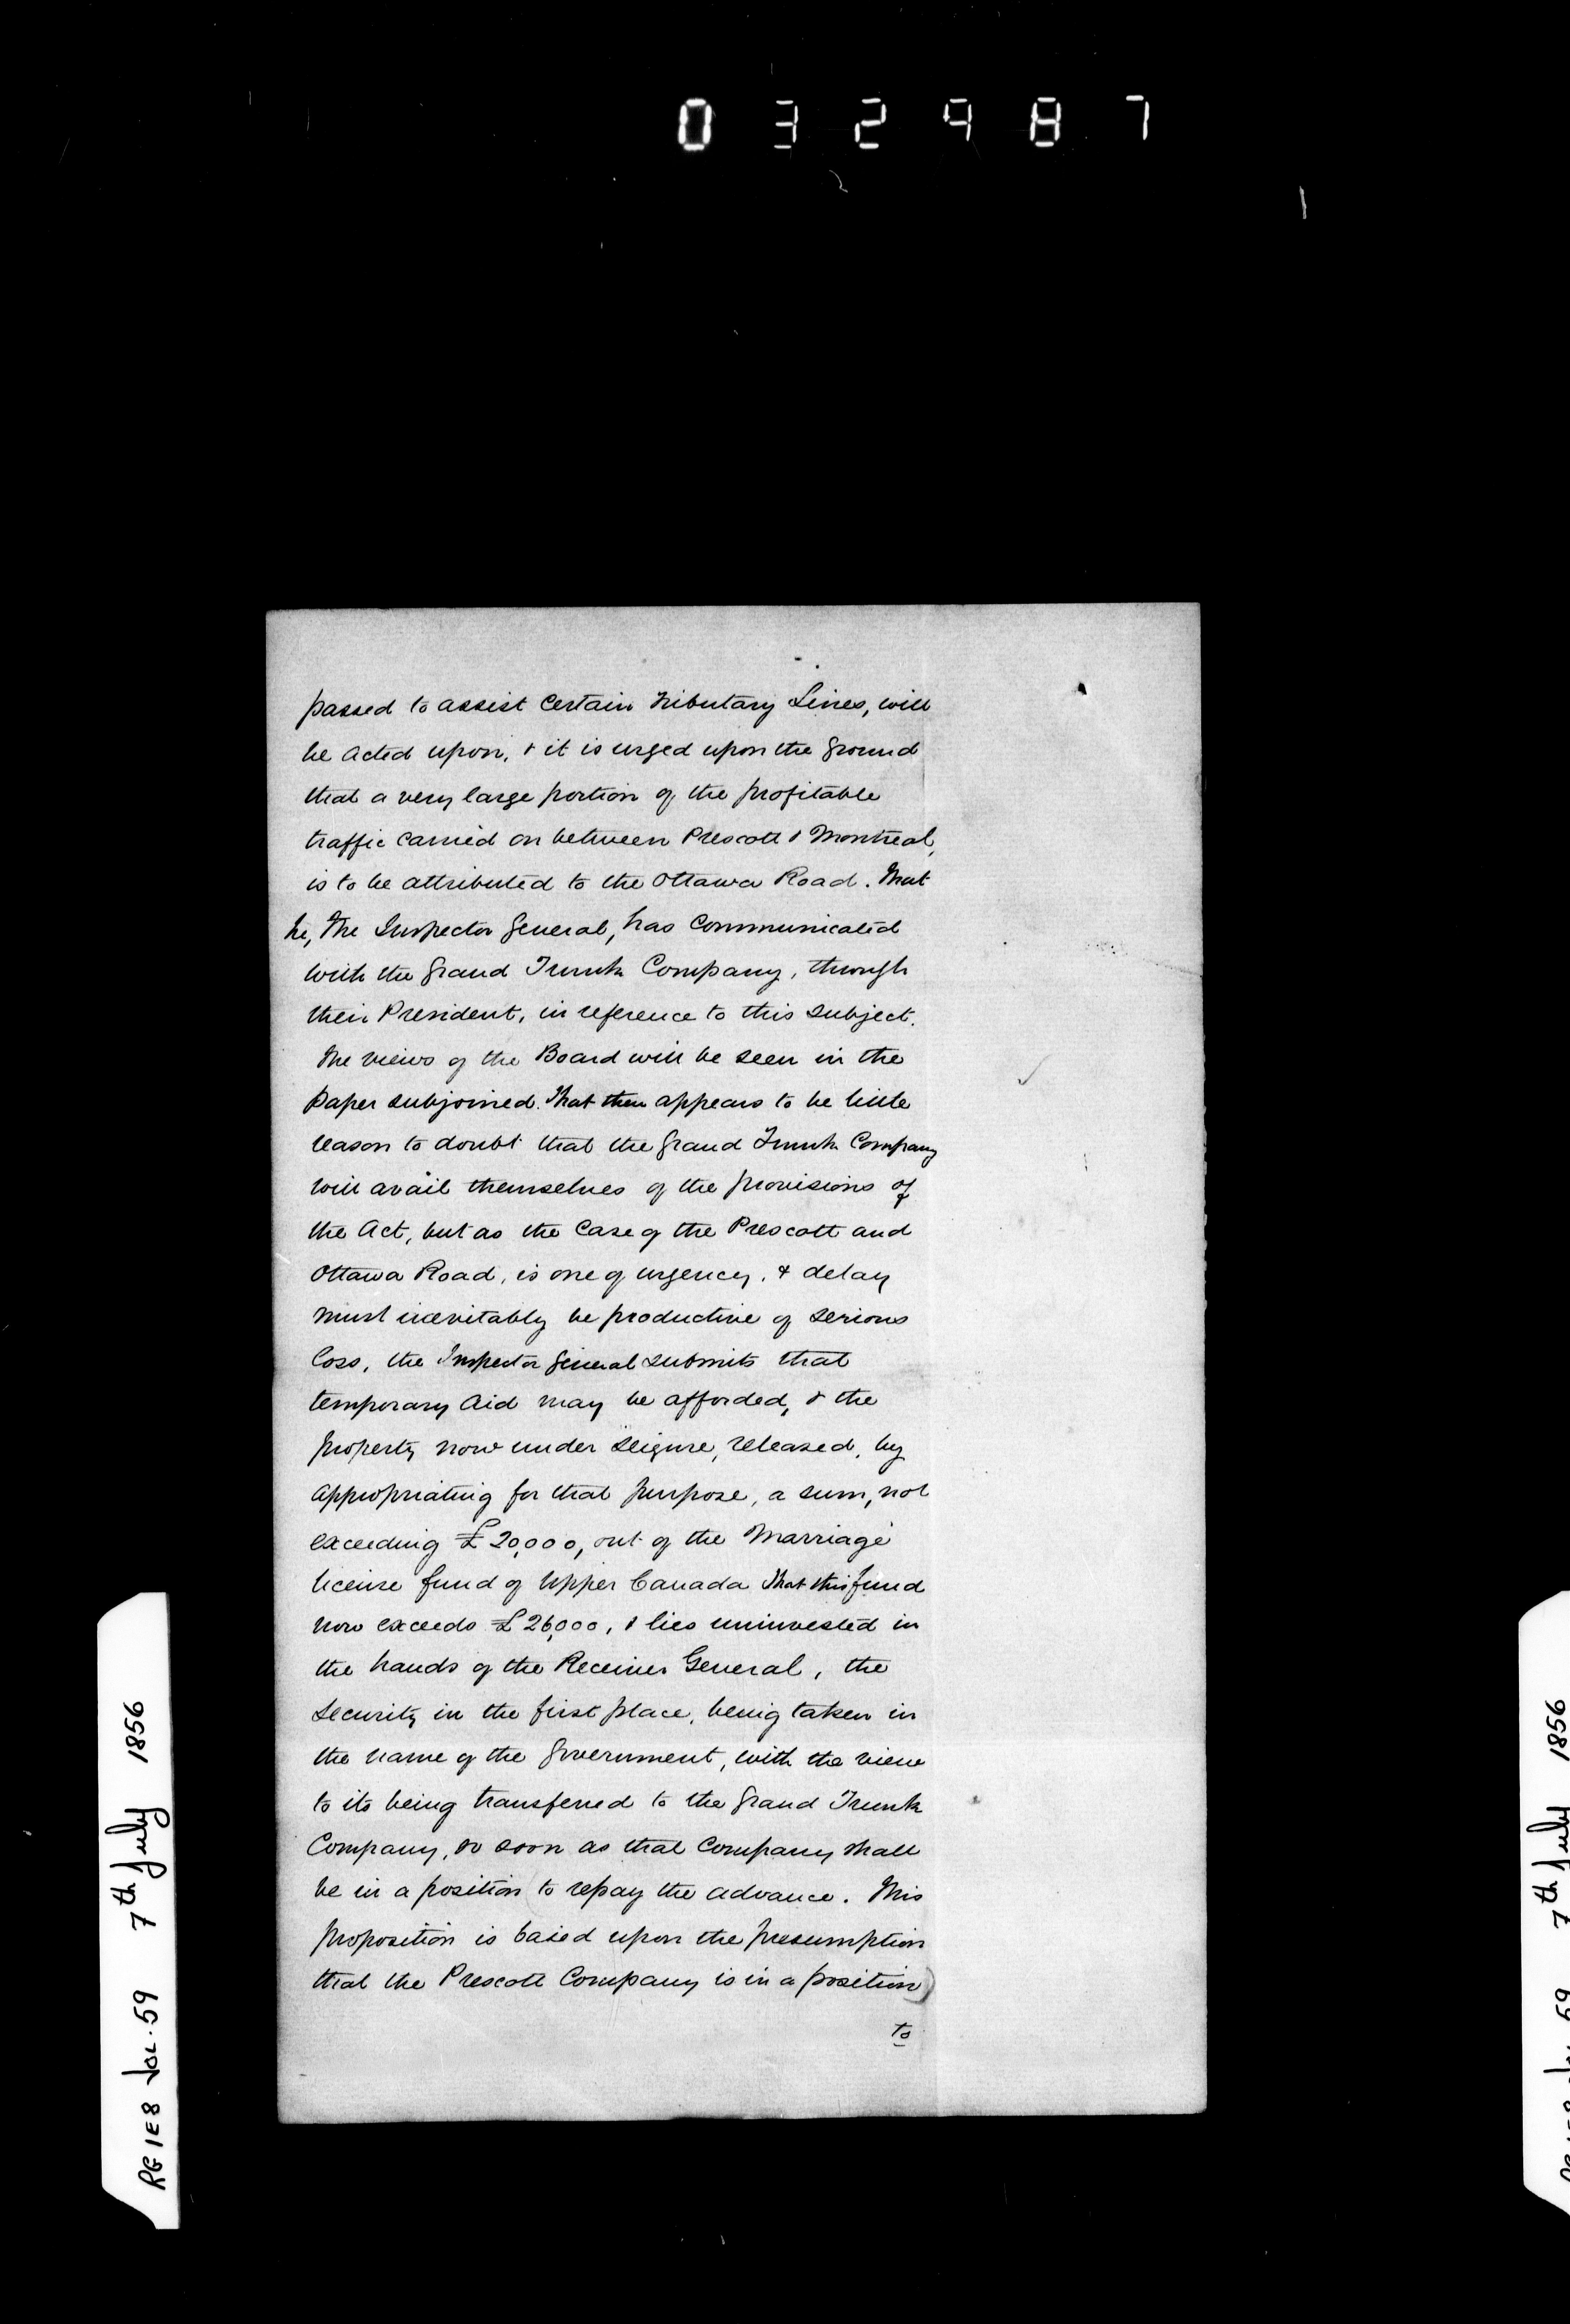 032987
passed to assist Certain Tributary Lines, will
be acted upon, & it is urged upon the ground
that a very large portion of the profitable
traffic carried on between Prescott & Montreal,
is to be attributed to the Ottawa Road. That
he, The Inspector General, has Communicated
with the Grand Trunk Company, through
their President, in reference to this subject.
The views of the Board will be seen in the
paper subjoined. That there appears to be little
reason to doubt that the Grand Trunk Company
will avail themselves of the provisions of
the Act, but as the Case of the Prescott and
Ottawa Road, is one of urgency, & delay
must inevitably be productive of serious
loss, the Inspector General submits that
temporary Aid may be afforded, & the
property now under Seizure, released, by
appropriating for that purpose, a sum, not
exceeding £20,000, out of the Marriage
license fund of Upper Canada That this fund
now exceeds £26,000, & lies uninvested in
the hands of the Receiver General, the
Security in the first place, being taken in
the name of the Government, with the view
to its being transferred to the Grand Trunk
Company, so soon as that Company shall
be in a position to repay the advance. This
proposition is based upon the presumption
that the Prescott Company is in a position
to
RG 1 E8 Vol. 59 7th July 1856
59 7th July 1856